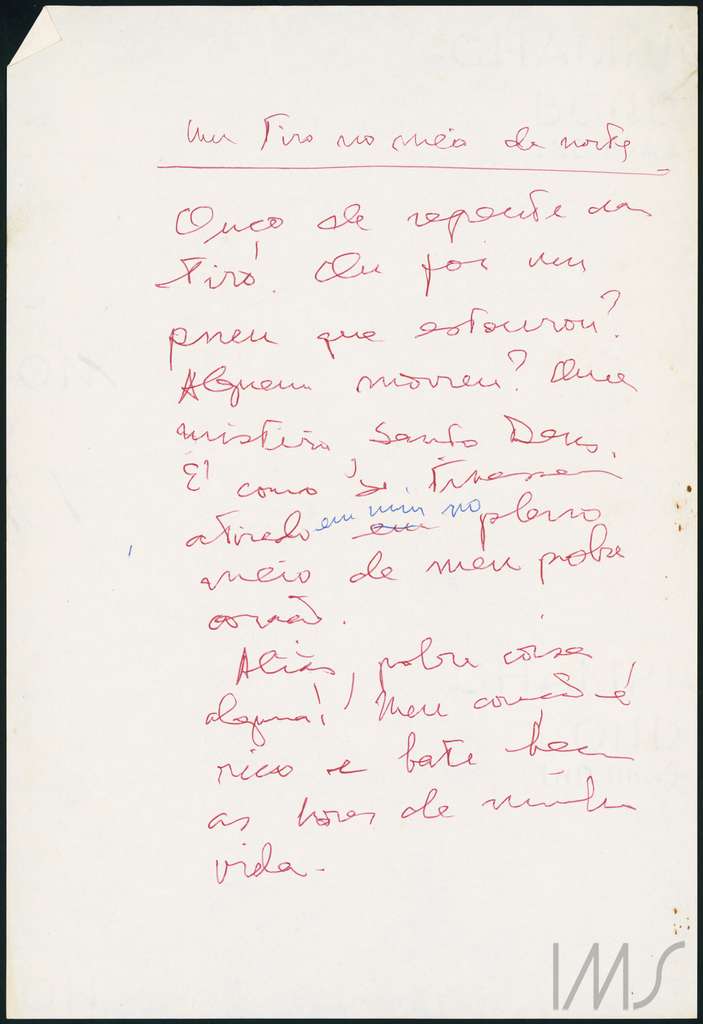 Um tiro no meio da noite
Ouço de repente um
tiro. Ou foi um
pneu que estourou?
Alguem morreu? Que
mistério, Santo Deus.
É como se tivessem
atirado em mim no pleno
meio de meu pobre
coração.
Aliás, pobre coisa
alguma! Meu coração é
rico e bate bem
as horas de minha
vida.
IMS